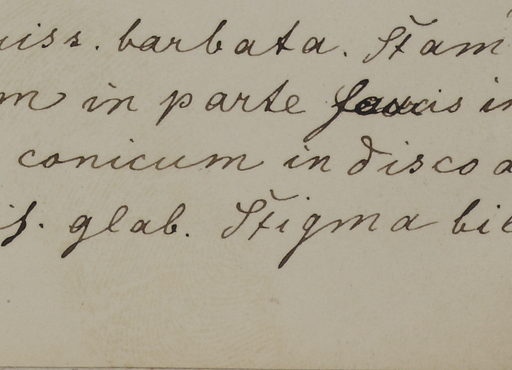 iss. barbata. Stam
m in parte faucis in
conicum in disco a
is. glab. Stigma bil